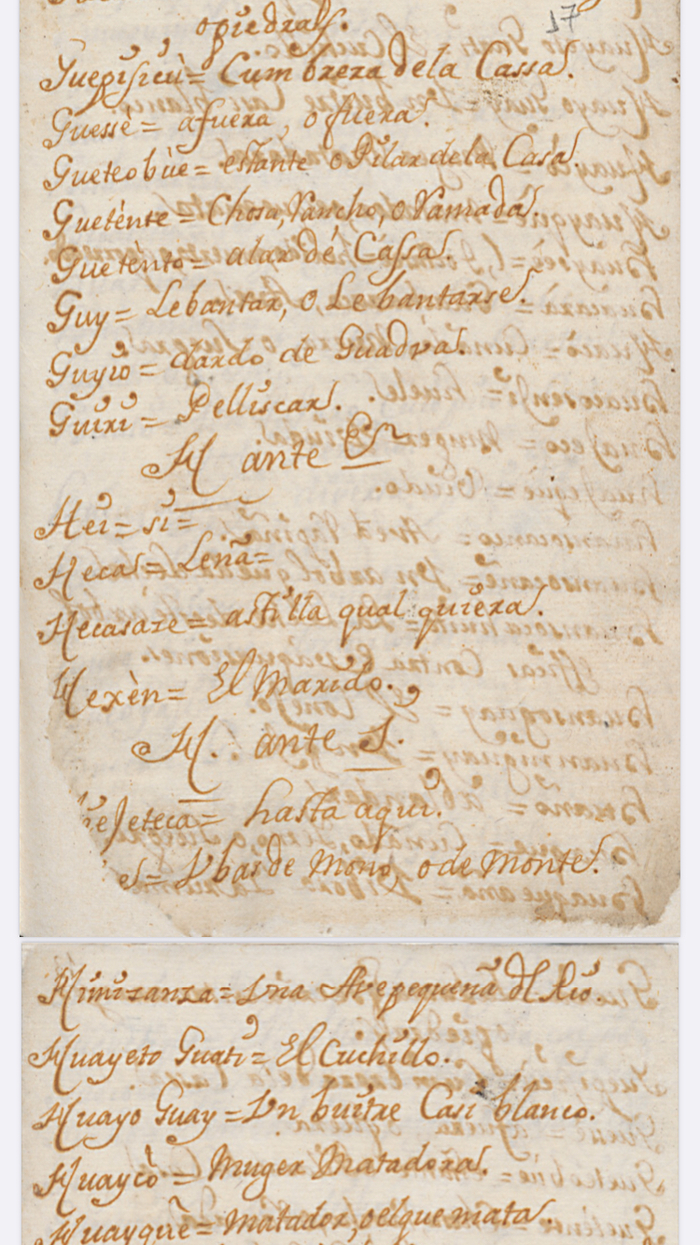 17
opiedras.
Guegisicù = Cumbrera dela Cassa.
Guessè = afuera, o fuera.
Gueteobùe = estante o Pilar dela Casa.
Guetènte = Chosa, Rancho, o Ramada.
Guetento = alar de Cassa.
Guy = Lebantar, o Lebantarse.
Guyio = dardo de Guadva.
Guiri = Pelliscar.
H ante E
Hei = si =
Hecas = Leña =
Hecasare = astilla qual quiera.
Hexèn = El Marido.
H. ante I.
Jeteca = hasta aqui.
= Vbas de Mono, o de Monte.
Himisansa = Vna Ave pequeña dl Rio.
Huayeto Guati = El Cuchillo.
Huayo Guay = Vn buitre Casi blanco.
Huaycò = Muger Matadora.
Huayquè = Matador, o elque mata.